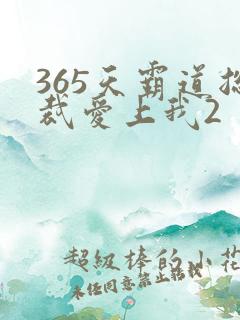 365天霸道总
裁爱上我2
超级棒的小花
未经同意禁止转载